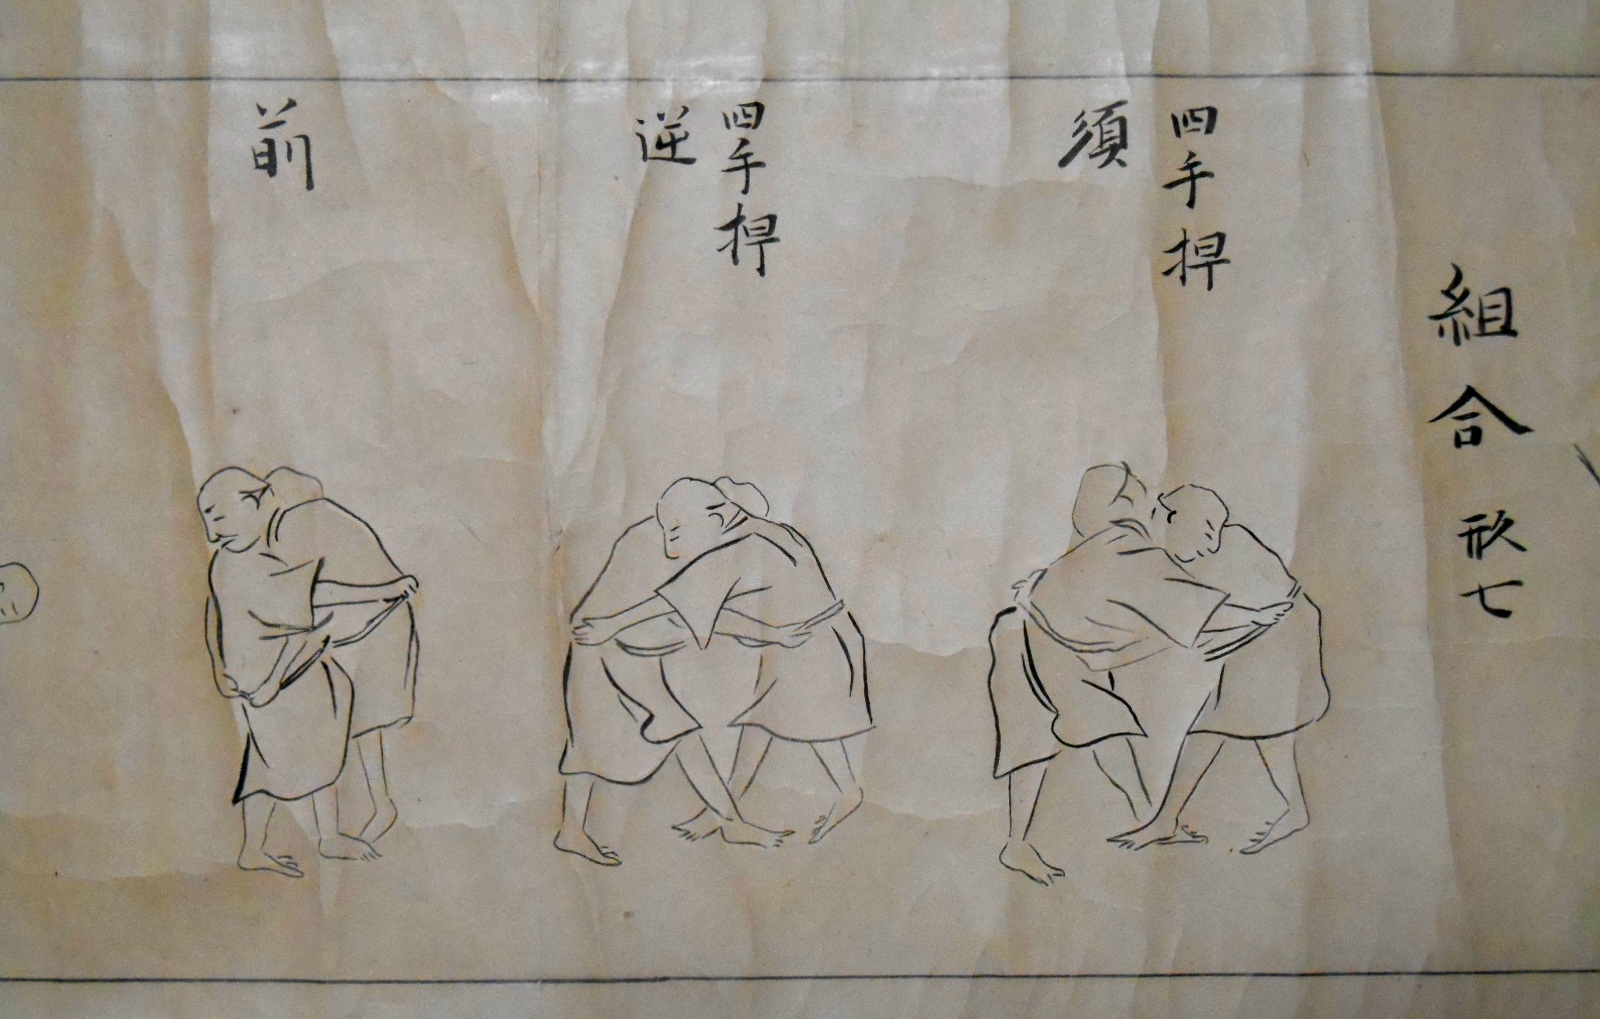 組合 形七
四手捍
須
四手捍
逆
前